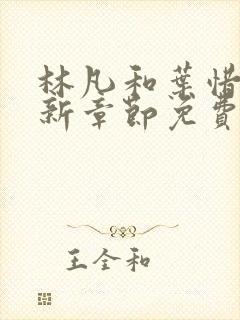 林凡和葉惜
新章節免費
王全和